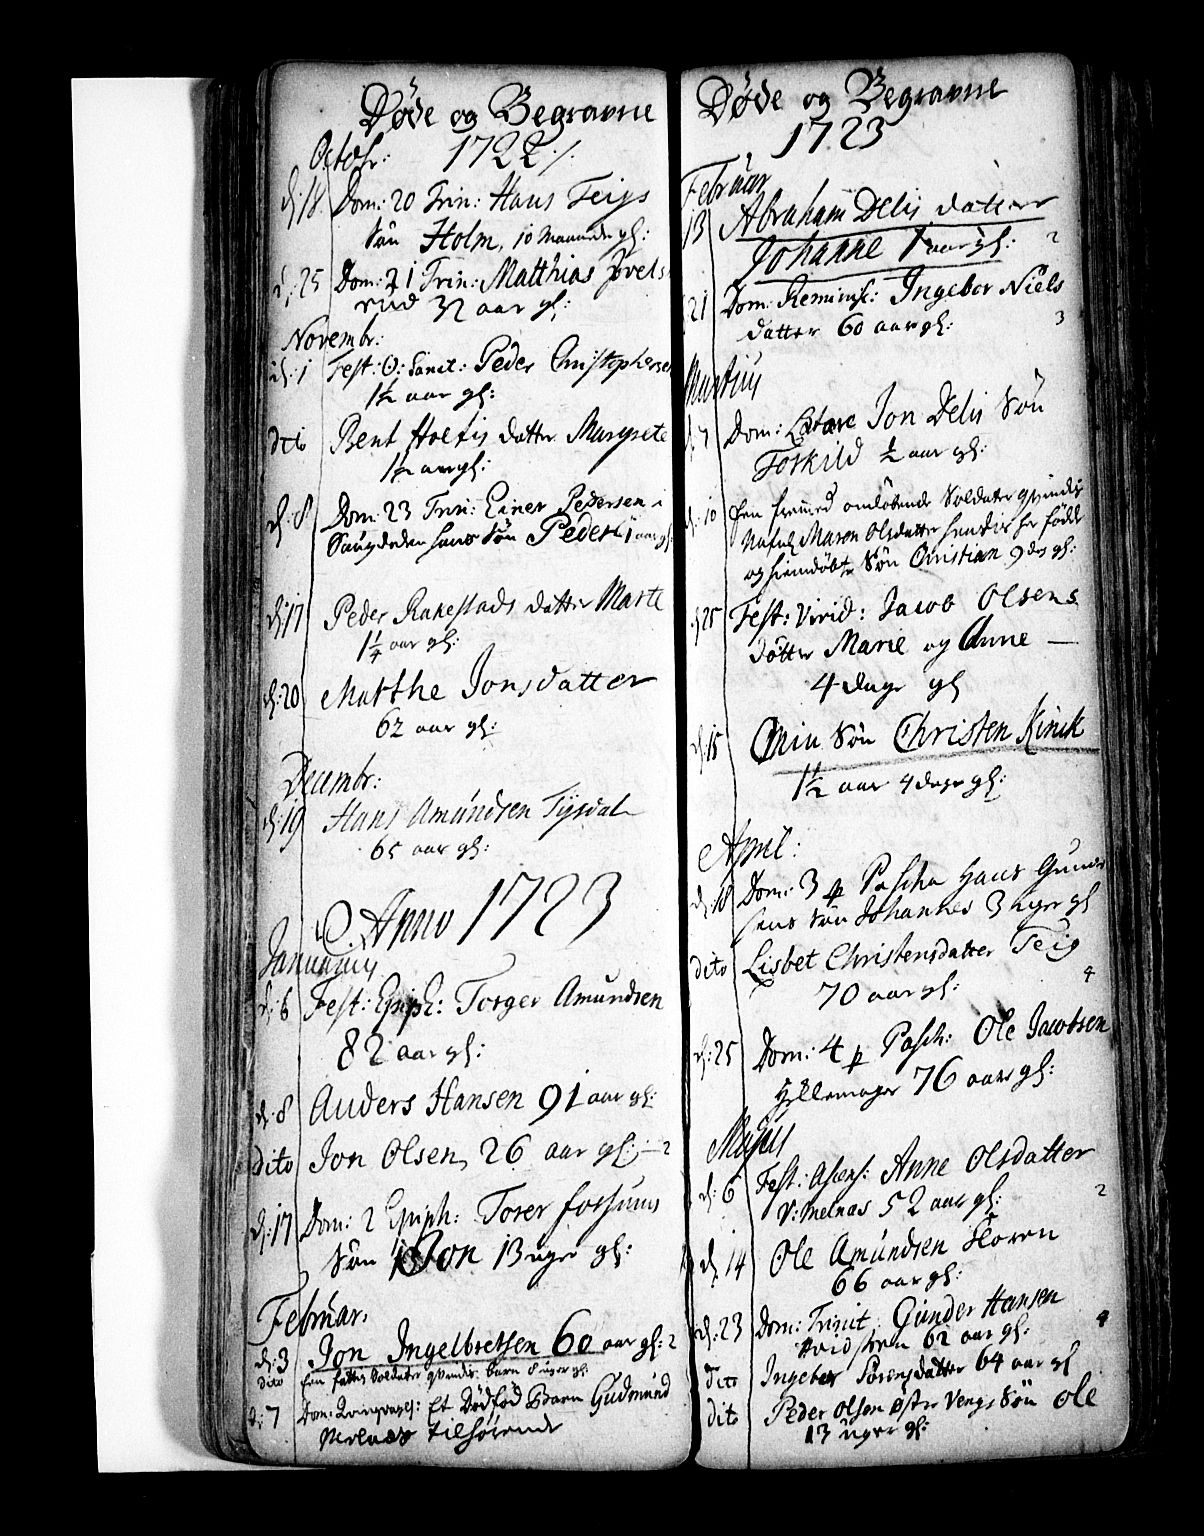 Døde og Begravne
Octobr: 1722
d: 18. Dom: 20 Trin: Hans Teigs
Søn Holm, 10 Maaneder gl:
d: 25 Dom: 21 Trin: Matthias
rud 32 aar gl:
Novembr:
d: 1 Fest: O: Sanct: Peder Christophersen
1½ aar gl:
dito Bent datter Margrete
1½ aar gl:
d: 8 Dom: 23 Trin: Einer Pedersen i
hans Søn Peder 1 aar gl:
d: 17 Peder Rakestads datter Marte
1¼ aar gl:
d: 20 Marthe Jonsdatter
62 aar gl:
Decembr:
d: 19 Hans Amundsen
65 aar gl:
Anno 1723
Januarius
d: 6 Fest: Epiph: Torger Amundsen
82 aar gl:
d: 8 Anders Hansen 91 aar gl:
dito Jon Olsen, 26 aar gl: 2
d: 17 Dom: 2 Epiph: Torer Fossums
Søn Jon 13 uger gl:
Februar.
d: 3 Jon Ingelbretsen 60 aar gl: 2
dito Een fattig Soldater qvindis barn 8 uger gl:
d: 7 Dom: Et Dødfød Barn Gudmund
Melnes tilhørende
Døde og Begravne
1723
Februar
13 Abraham Delis datter
Johanne 1 aar gl: 2
21 Dom: Reminisc: Ingebor Niels
datter 60 aar gl: 3
Martius
d: 7 Dom: Lætare Jon Delis Søn
Torkild ½ aar gl:
d: 10 Een fremmed omløbende Soldater qvindis
Nafnl: Maren Olsdatter hendis her fødde
og hiemdøbte Søn Christian 9 dag gl:
d: 25 Fest: Virid: Jacob Olsens
døttre Marie og Anne —
4 dage gl
d: 15 Min Søn Christen Kinck
1½ aar 4 dage gl:
April:
d: 18 Dom: 3 p Pascha Hans Gunder
sens Søn Johannes 3 uger gl
dito Lisbet Christensdatter Teig
70 aar gl: 4
d: 25 Dom: 4 p Pasch: Ole Jacobsen
76 aar gl:
Majus
d: 6 Fest: Ascens: Anne Olsdatter
V: Melnas 52 aar gl: 2
d: 14 Ole Amundsen Floren
66 aar gl:
d: 23 Dom: Trinit: Gunder Hansen
62 aar gl: 4
dito Ingebor Sørensdatter 64 aar gl
dito Peder Olsen østre Vengs Søn Ole
13 uger gl: